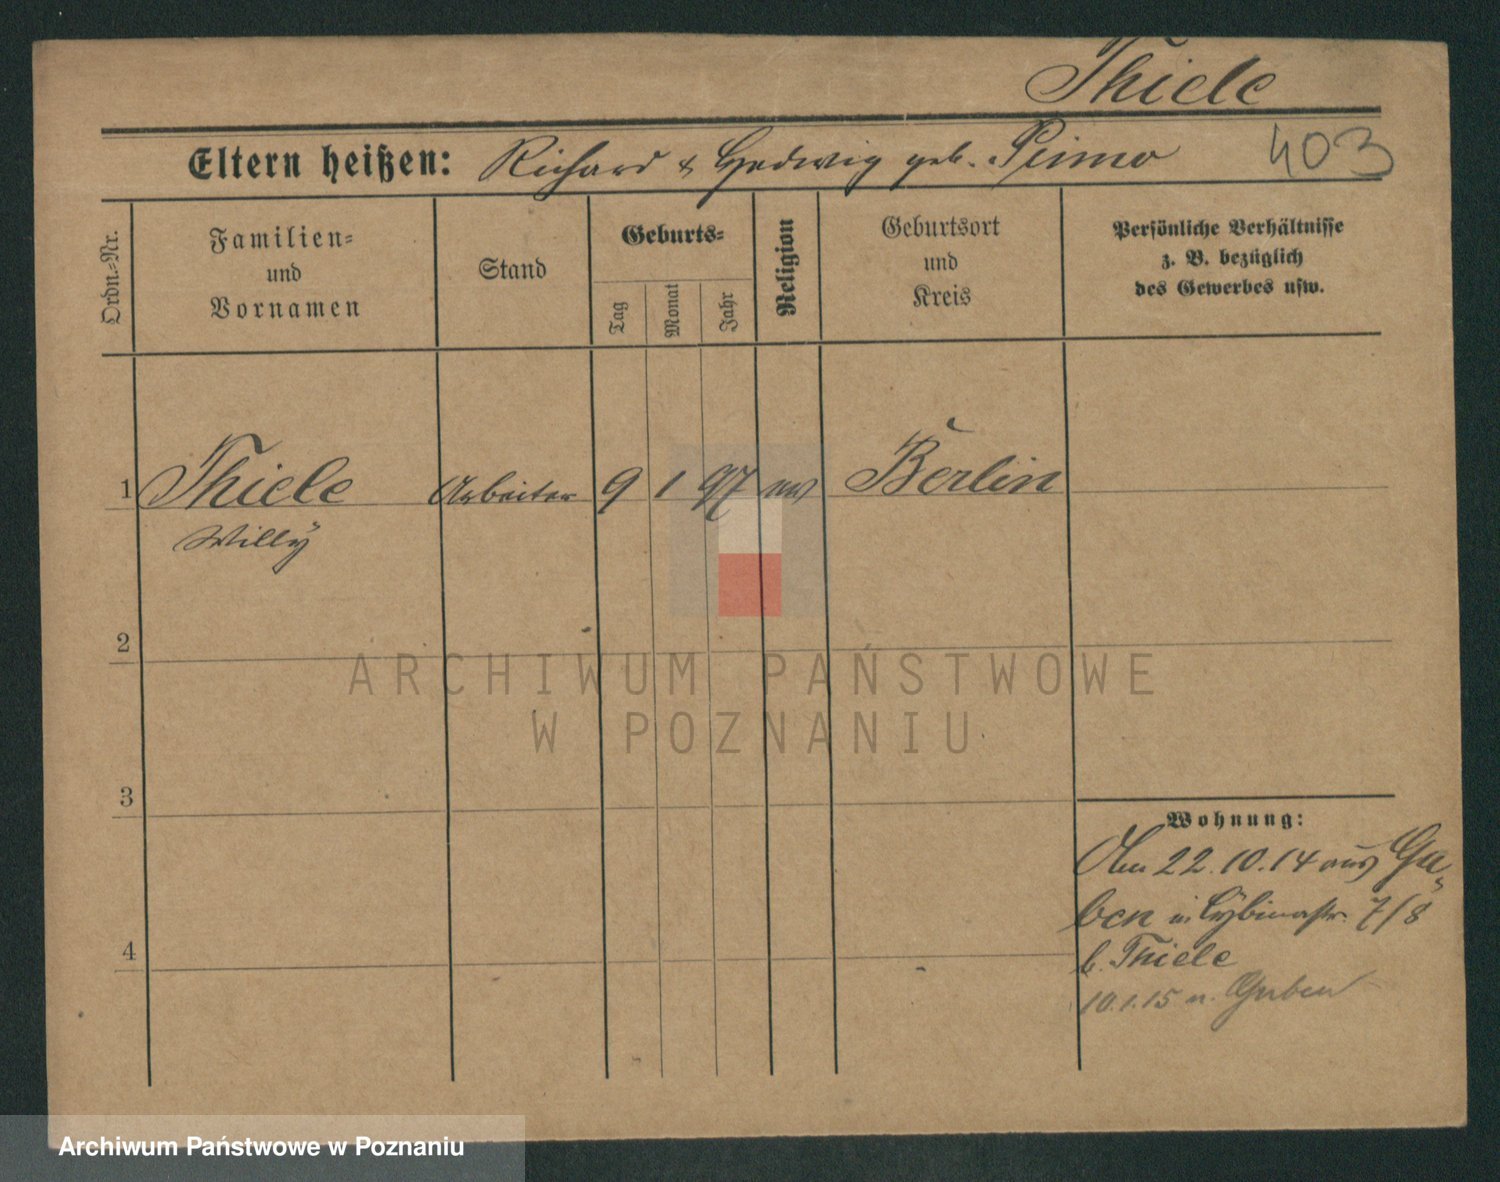 Thiele
Eltern heißen: Richard & Hedwig geb. Primo
403
Ordn.=Nr.
Familien=
und
Vornamen
Stand
Geburts=
Tag
Monat
Jahr
Religion
Geburtsort
und
Kreis
Persönliche Verhältnisse
z. B. bezüglich
des Gewerbes usw.
1 Thiele Arbeiter 9 1 97 ev Berlin
Willy
2
3
4
Wohnung:
22.10.14 aus Gu=
ben in Cybinastr. 7/8
b. Thiele
10.1.15 n. Guben
ARCHIWUM PAŃSTWOWE
W POZNANIU
Archiwum Państwowe w Poznaniu